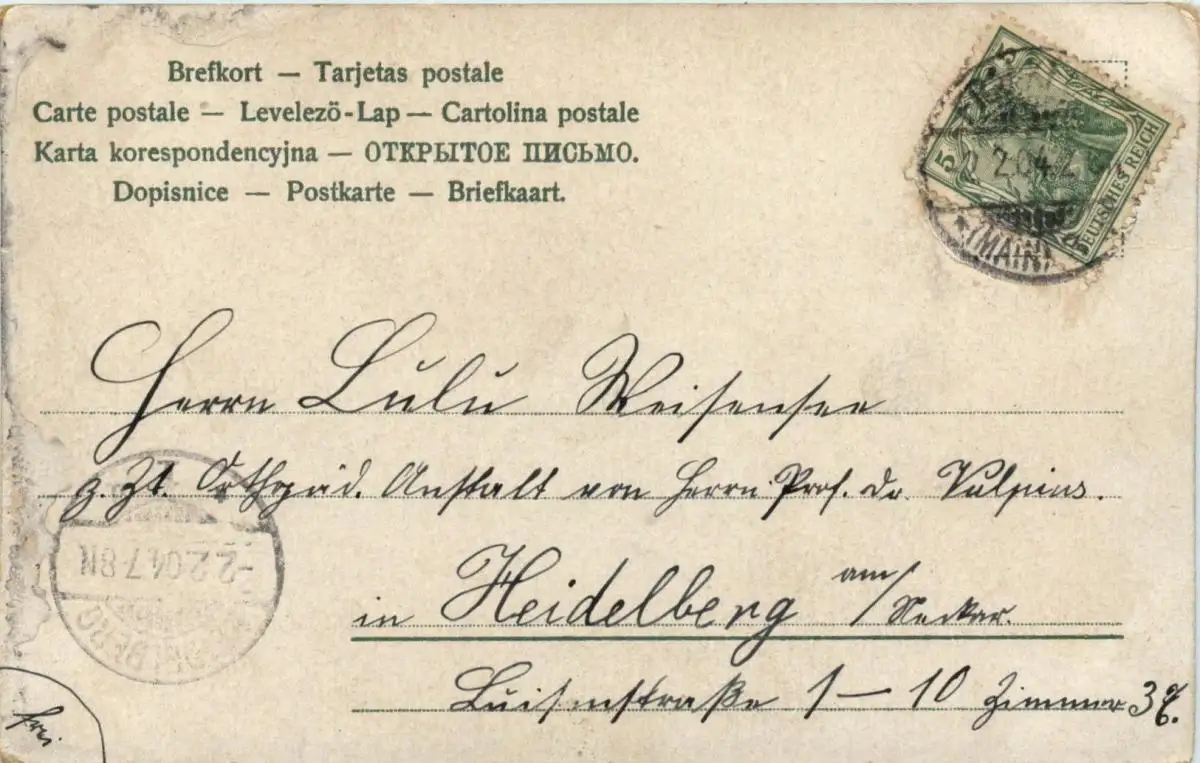 Brefkort — Tarjetas postale
Carte postale — Levelezö-Lap — Cartolina postale
Karta korespondencyjna — ОТКРЫТОЕ ПИСЬМО.
Dopisnice — Postkarte — Briefkaart.
5
DEUTSCHES REICH
2.04.
* (MAIN)
Herrn Lulu Weisensee
z. Zt. Orthopäd. Anstalt von Herrn Prof. Dr. Vulpius.
in Heidelberg am/Neckar.
Luisenstraße 1—10 Zimmer 36.
-2.2.04.7-8N
HEIDELBERG
frei.